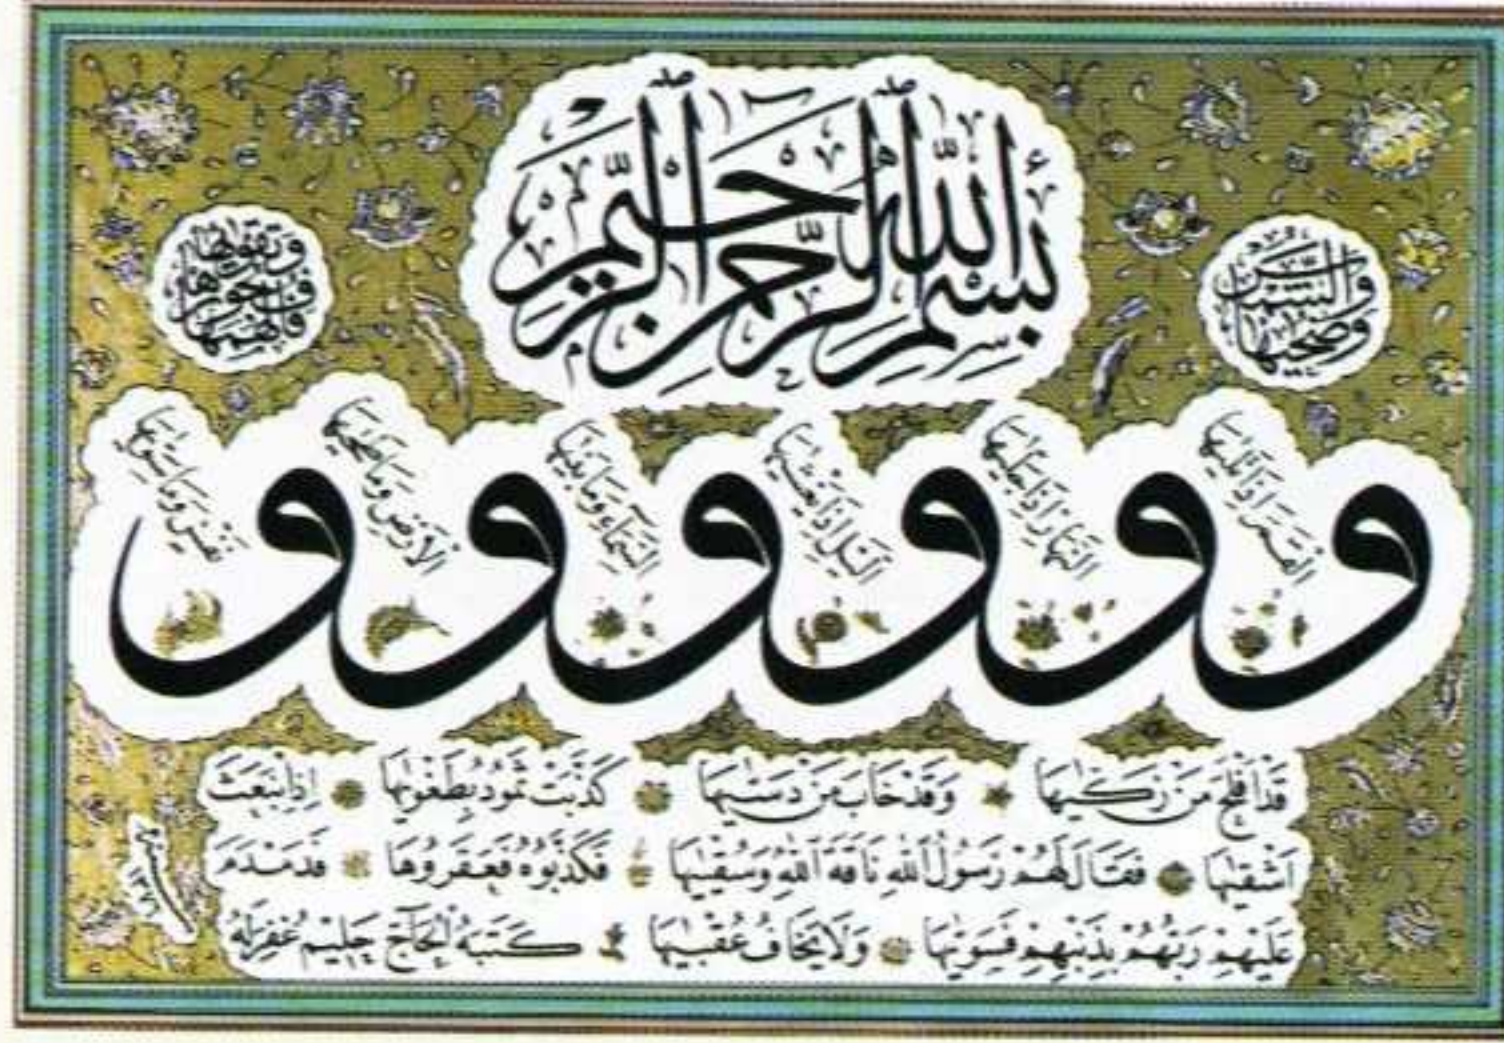 بِسْمِ اللّٰهِ الرَّحْمٰنِ الرَّحِيمِ
وَالشَّمْسِ
وَضُحٰيهَا
و الْقَمَرِ اِذَا تَلٰيهَا
و النَّهَارِ اِذَا جَلّٰيهَا
و الَّيْلِ اِذَا يَغْشٰيهَا
و السَّمَاءِ وَمَا بَنٰيهَا
و الْاَرْضِ وَمَا طَحٰيهَا
و نَفْسٍ وَمَا سَوّٰيهَا
فَاَلْهَمَهَا
فُجُورَهَا
وَتَقْوٰيهَا
قَدْ اَفْلَحَ مَنْ زَكّٰيهَا وَقَدْ خَابَ مَنْ دَسّٰيهَا كَذَّبَتْ ثَمُودُ بِطَغْوٰيهَا اِذِ انْبَعَثَ
اَشْقٰيهَا فَقَالَ لَهُمْ رَسُولُ اللّٰهِ نَاقَةَ اللّٰهِ وَسُقْيٰيهَا فَكَذَّبُوهُ فَعَقَرُوهَا فَدَمْدَمَ
عَلَيْهِمْ رَبُّهُمْ بِذَنْبِهِمْ فَسَوّٰيهَا وَلَا يَخَافُ عُقْبٰيهَا كَتَبَهُ الْحَاجّ حَلِيم غُفِرَ لَهُ
١٣٧٦